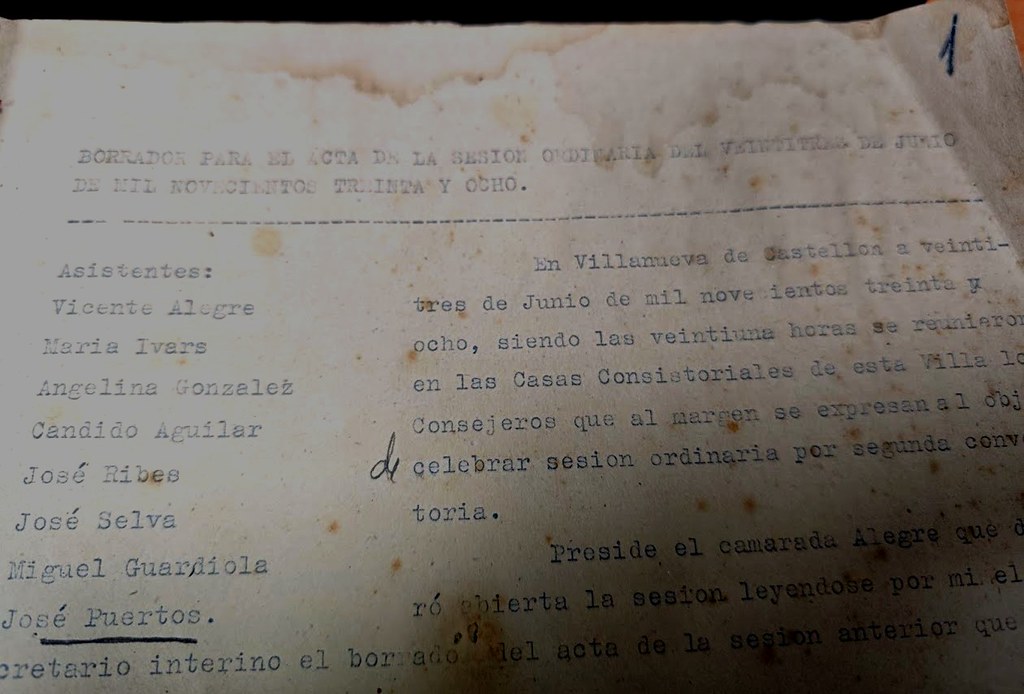 1
BORRADOR PARA EL ACTA DE LA SESION ORDINARIA DEL VEINTITRES DE JUNIO
DE MIL NOVECIENTOS TREINTA Y OCHO.
Asistentes:
Vicente Alegre
Maria Ivars
Angelina Gonzalez
Candido Aguilar
José Ribes
José Selva
Miguel Guardiola
José Puertos.
En Villanueva de Castellon a veinti-
tres de Junio de mil novecientos treinta y
ocho, siendo las veintiuna horas se reunieron
en las Casas Consistoriales de esta Villa lo
Consejeros que al margen se expresan al obj
de celebrar sesion ordinaria por segunda conv
toria.
Preside el camarada Alegre que d
ró abierta la sesion leyendose por mi el
cretario interino el borrador del acta de la sesion anterior que